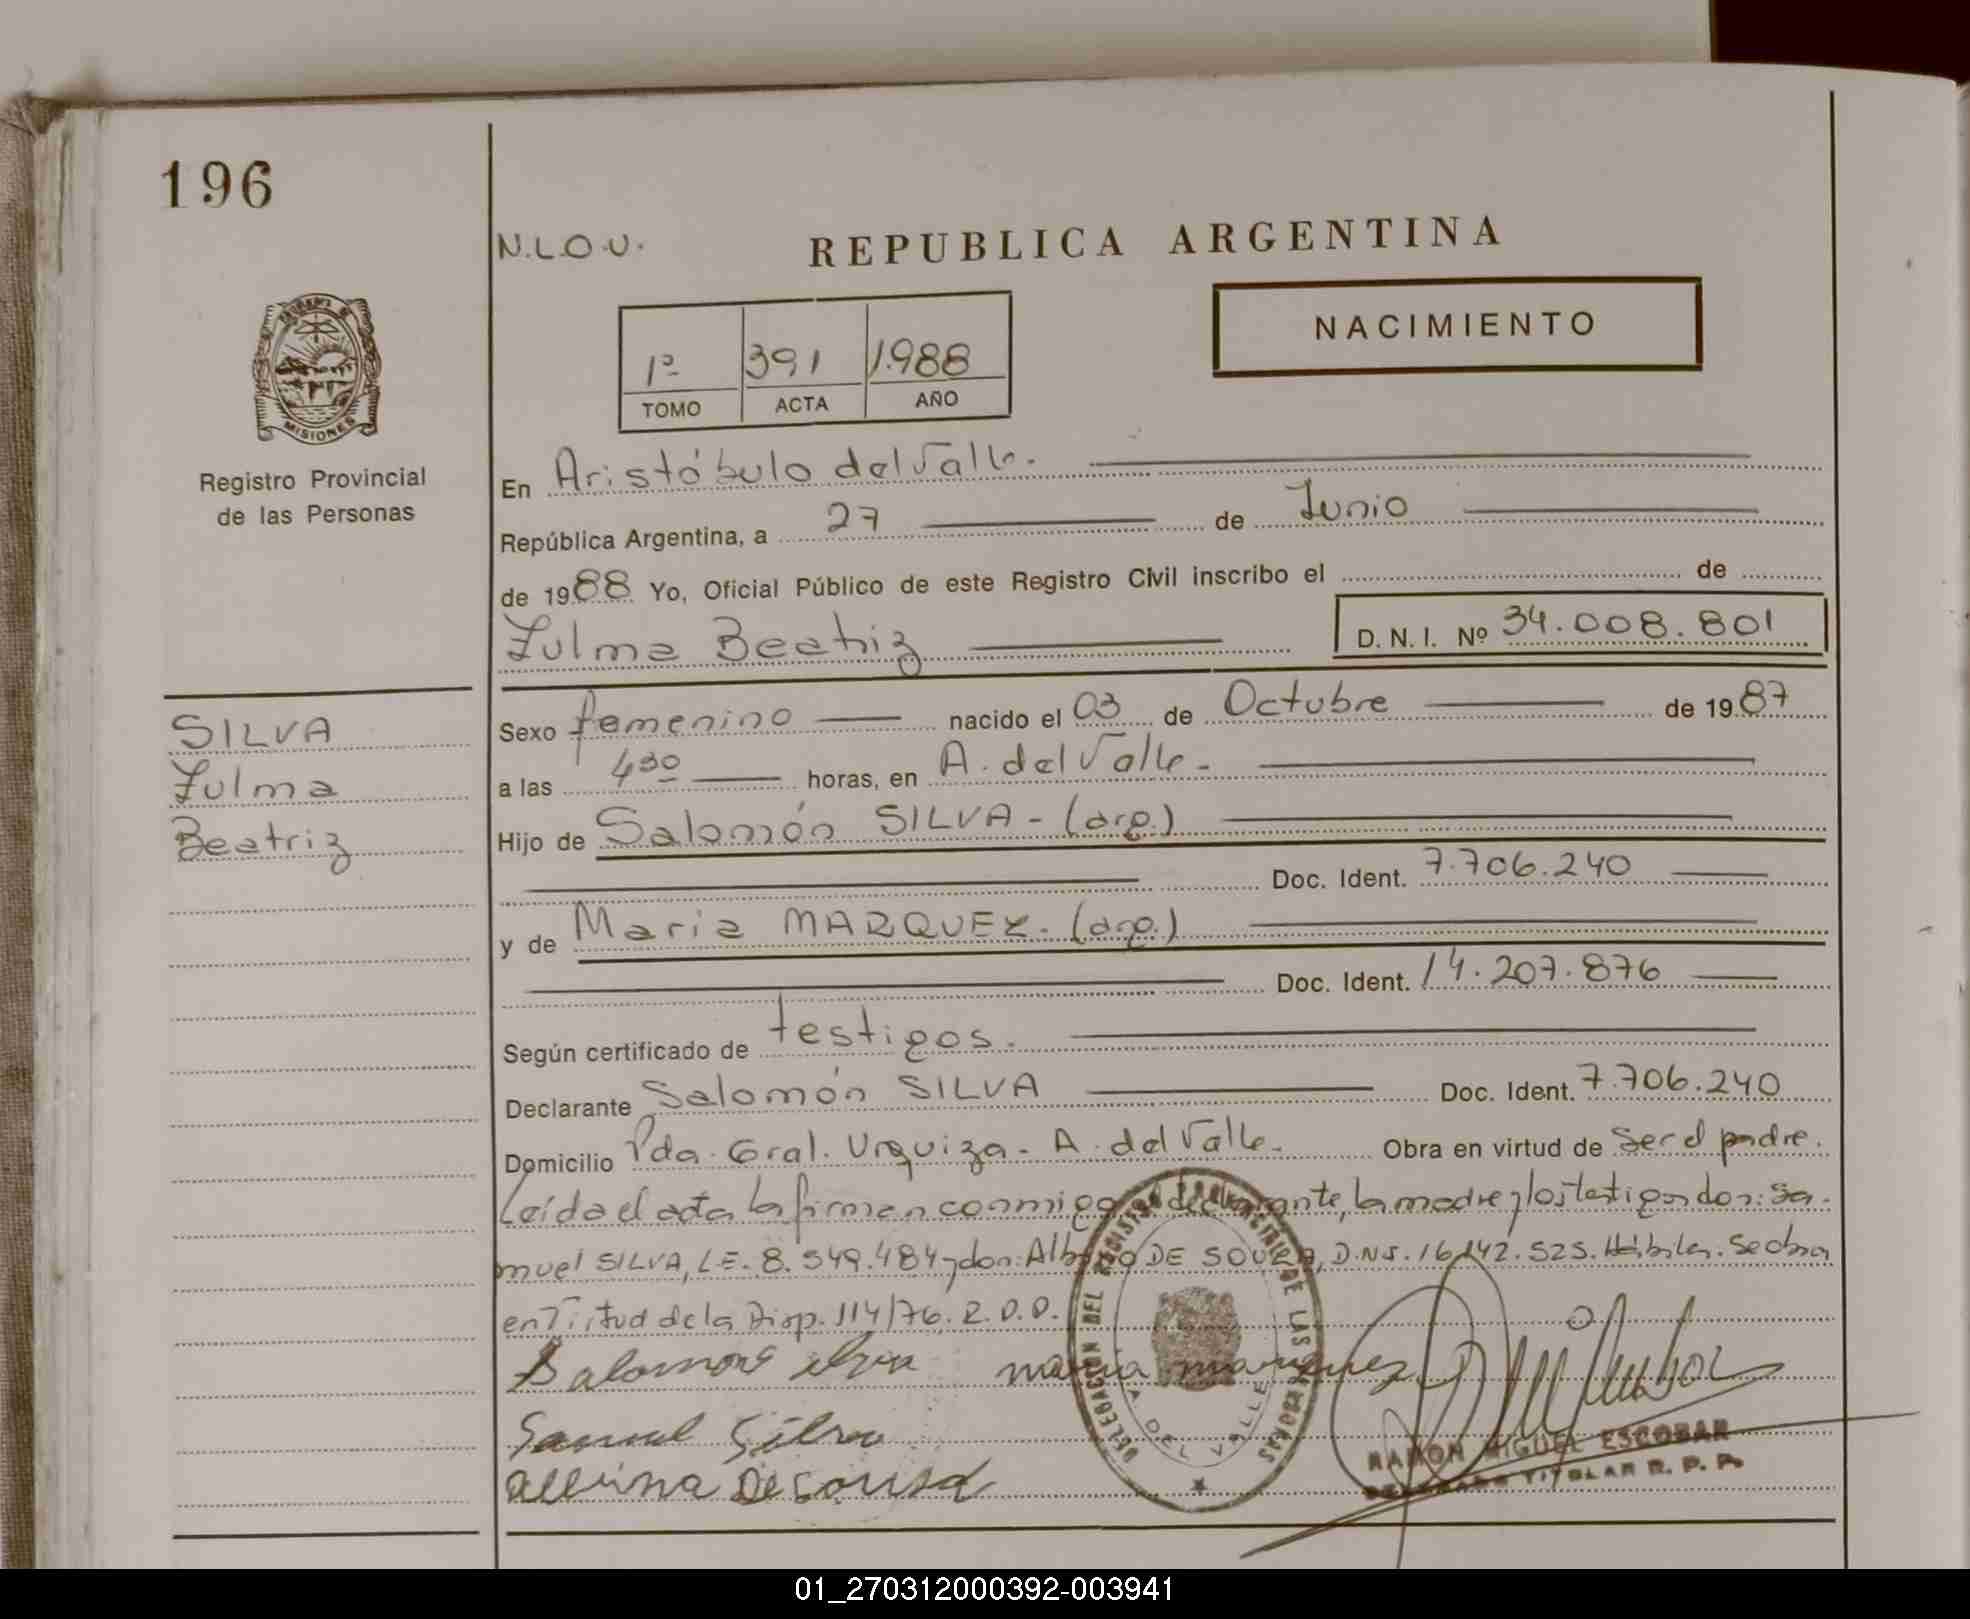 196
N.L.O.U.
REPUBLICA ARGENTINA
NACIMIENTO
1º 391 1.988
TOMO ACTA AÑO
MISIONES
Registro Provincial
de las Personas
En Aristóbulo del Valle.
República Argentina, a 27 de Junio
de 1988 Yo, Oficial Público de este Registro Civil inscribo el de
Zulma Beatriz D. N. I. Nº 34.008.801
SILVA
Zulma
Beatriz
Sexo femenino nacido el 03 de Octubre de 1987
a las 4³⁰ horas, en A. del Valle.
Hijo de Salomón SILVA - (arg.)
Doc. Ident. 7.706.240
y de Maria MARQUEZ. (arg.)
Doc. Ident. 14.207.876
Según certificado de testigos.
Declarante Salomón SILVA Doc. Ident. 7.706.240
Domicilio Pda. Gral. Urquiza - A. del Valle. Obra en virtud de ser el padre.
Leída el acta la firman conmigo el declarante, la madre y los testigos don: Sa-
muel SILVA, L.E. 8.549.484 y don: DE SOUZA, D.N.I. 16.142.525. Hábiles. Se obra
en Virtud de la Disp. 114/76. R.P.P.
Salomon Silva maria marquez
Samuel Silva
DELEGACION DEL REGISTRO PROVINCIAL DE LAS PERSONAS
A DEL VALLE
RAMON MIGUEL ESCOBAR
DELEGADO TITULAR R. P. P.
01_270312000392-003941